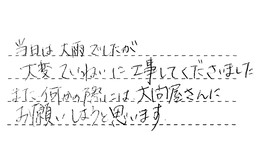 当日は大雨でしたが
大変ていねいに工事してくださいました
また、何かの際には大問屋さんに
お願いしようと思います